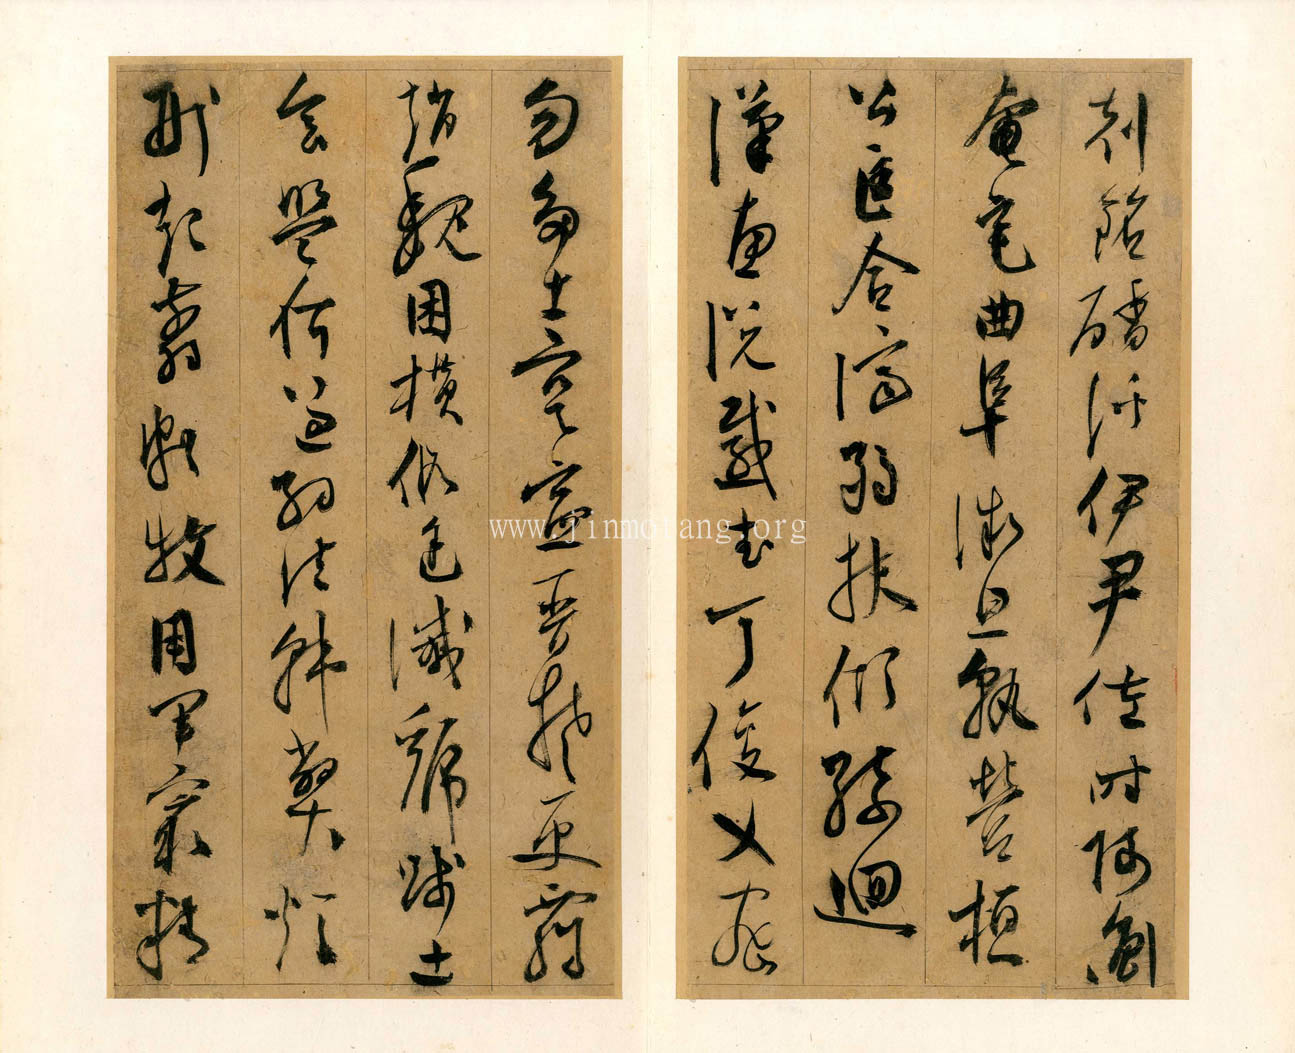 刻銘磻溪伊尹佐時阿衡
奄宅曲阜微旦孰營桓
公匡合濟弱扶傾綺迴
漢惠説感武丁俊乂密
勿多士寔寧晉楚更霸
趙魏困橫假途滅虢踐土
會盟何遵約法韓弊煩
刑起翦頗牧用軍最精
www.jinmotang.org